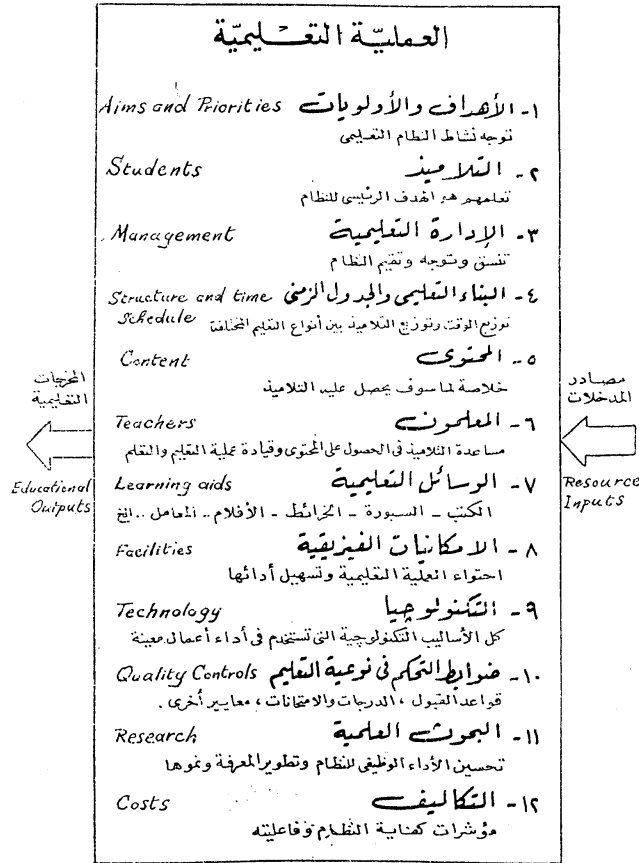 العمليّة التعـليميّة
١- الأهداف والأولويات Aims and Priorities
توجه نشاط النظام التعليمى
٢- التلاميذ Students
تعلمهم هو الهدف الرئيسى للنظام
٣- الإدارة التعليمية Management
تنسق وتوجه وتقيم النظام
٤- البناء التعليمى والجدول الزمنى Structure and time Schedule
توزيع الوقت وتوزيع التلاميذ بين أنواع التعليم المختلفة
٥- المحتوى Content
خلاصة لما سوف يحصل عليه التلاميذ
٦- المعلمون Teachers
مساعدة التلاميذ فى الحصول على المحتوى وقيادة عملية التعليم والتعلم
٧- الوسائل التعليمية Learning aids
الكتب - السبورة - الخرائط - الأفلام .. المعامل .. الخ
٨- الامكانيات الفيزيقية Facilities
احتواء العملية التعليمية وتسهيل أدائها
٩- التكنولوچيا Technology
كل الأساليب التكنولوچية التى تستخدم فى أداء أعمال معينة
١٠- ضوابط التحكم فى نوعية التعليم Quality Controls
قواعد القبول ، الدرجات والامتحانات ، معايير أخرى .
١١- البحوث العلمية Research
تحسين الأداء الوظيفى للنظام وتطوير المعرفة ونموها
١٢- التكاليف Costs
مؤشرات كفاية النظام وفاعليته
مصادر
المدخلات
Resource
Inputs
المخرجات
التعليمية
Educational
Outputs